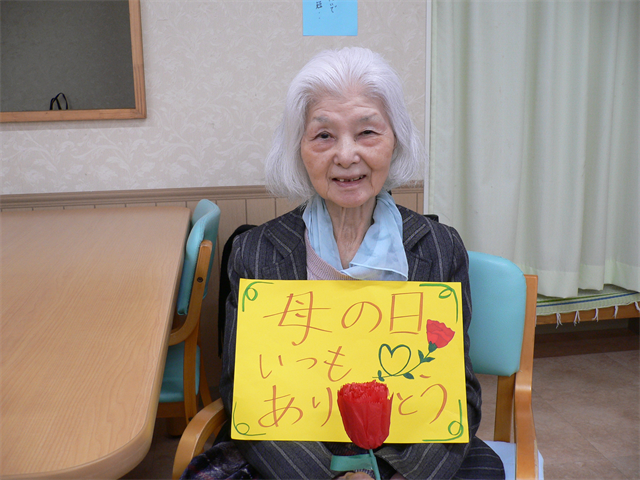 母の日
いつも
ありとう